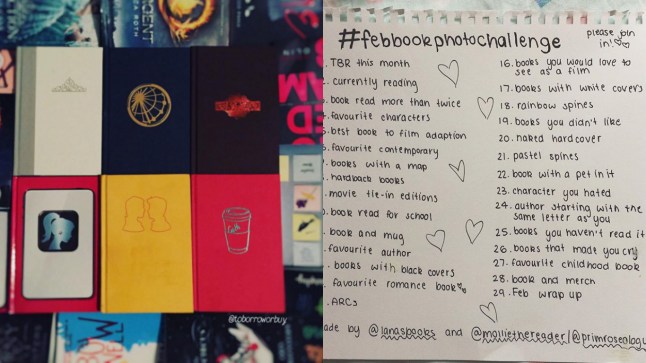 @toborroworbuy
#febbookphotochallenge
please join
in!
TBR this month
currently reading
book read more than twice
favourite characters
best book to film adaption
favourite contemporary
books with a map
hardback books
movie tie-in editions
book read for school
book and mug
favourite author
books with black covers
favourite romance book
ARCs
16. books you would love to
see as a film
17. books with white covers
18. rainbow spines
19. books you didn't like
20. naked hardcover
21. pastel spines
22. book with a pet in it
23. character you hated
24. author starting with the
same letter as you
25. books you haven't read it
26. books that made you cry
27. favourite childhood book
28. book and merch
29. Feb wrap up
ade by @lanasbooks and @molliethereader/@primrosealogu